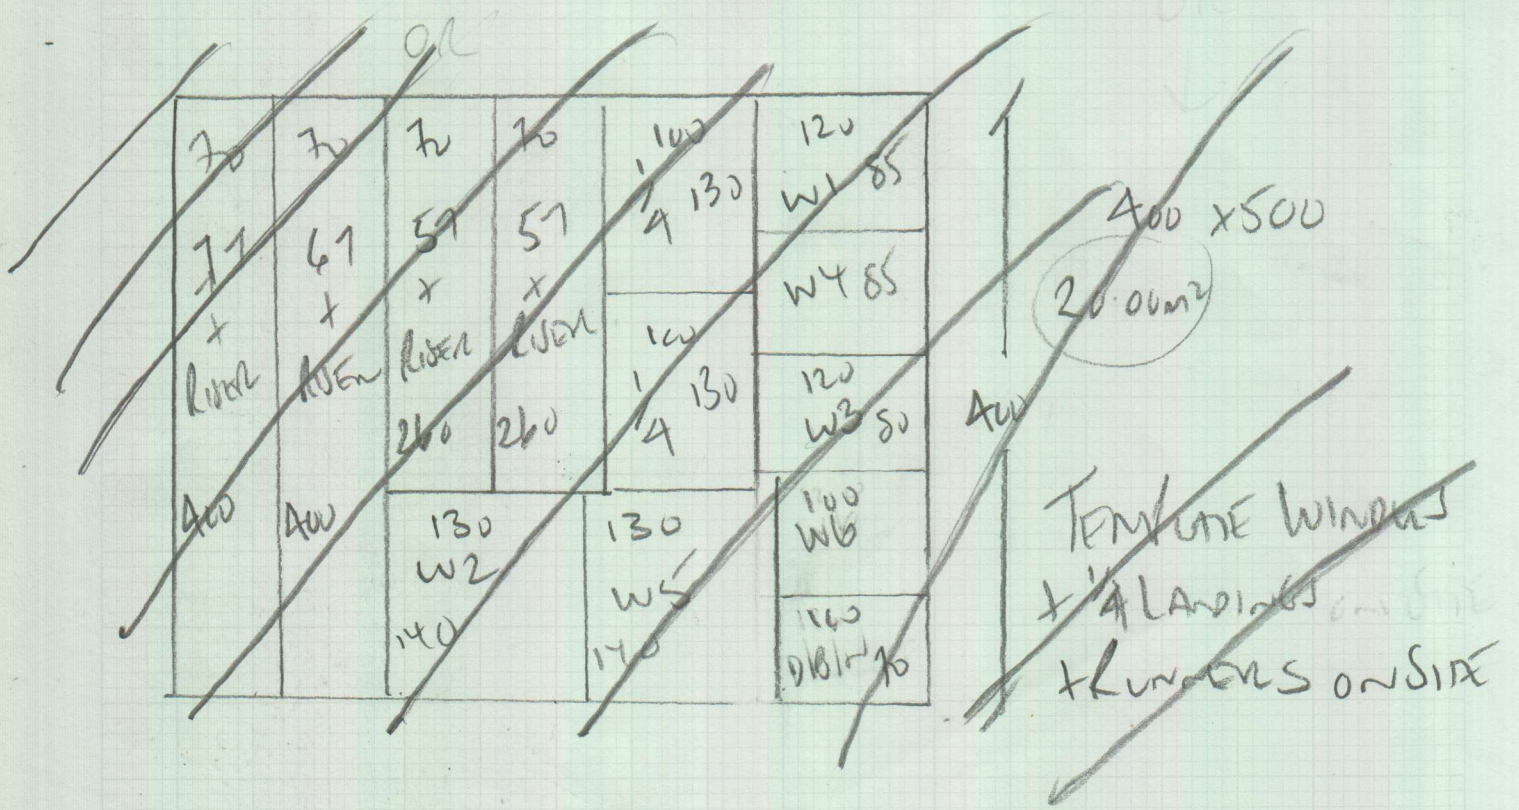 OR
70
77
+
RISER
400
70
67
+
RISER
400
70
57
+
RISER
260
70
57
+
RISER
260
100
1/4 130
100
1/4 130
120
W1 85
W4 85
120
W3 80
100
W6
130
W2
140
130
W5
140
70
400
400 x 500
20.00m²
TEMPLATE WINDERS
+ 1/4 LANDINGS
+ RUNNERS ON SITE